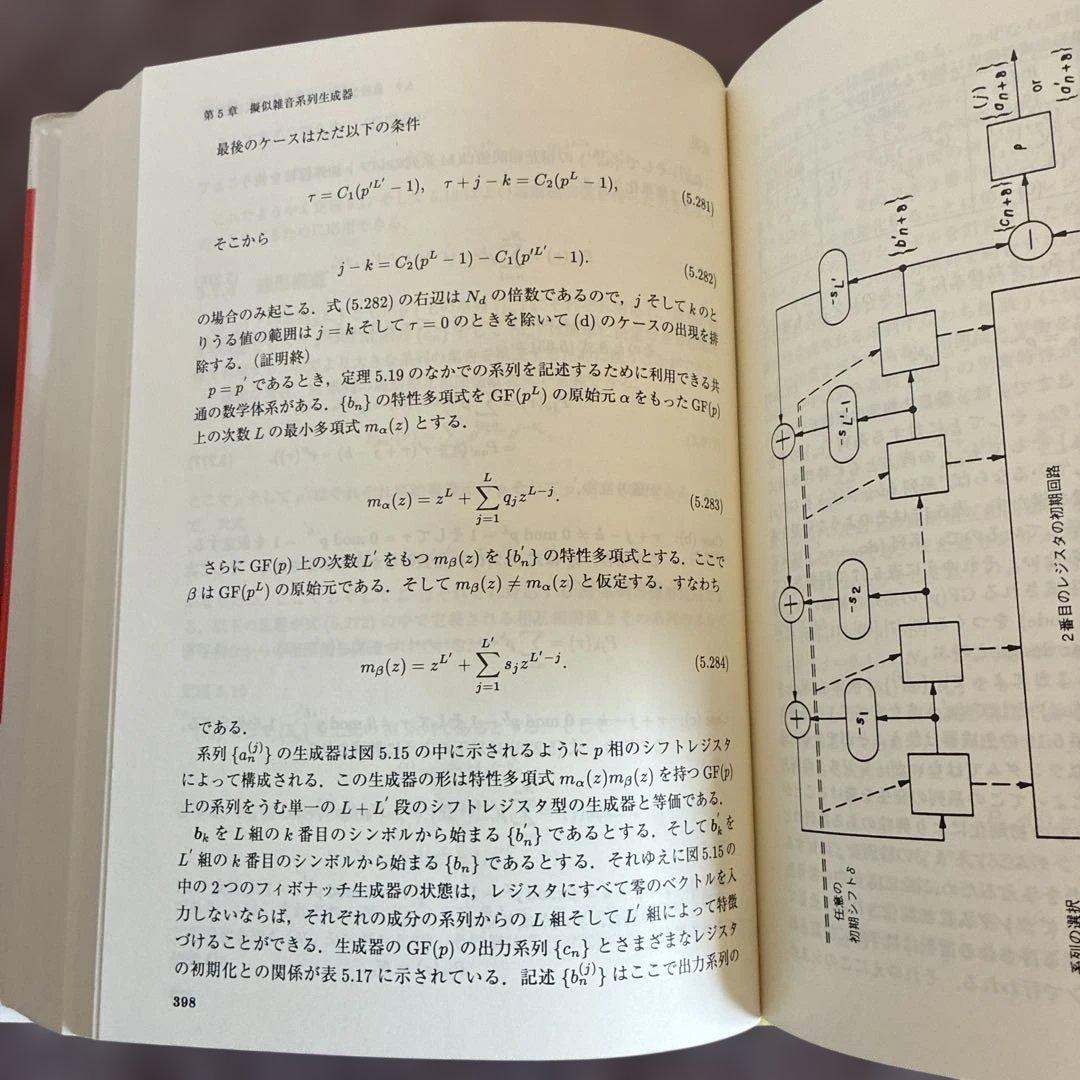 第5章 擬似雑音系列生成器
最後のケースはただ以下の条件
τ = C₁(p'^{L'} − 1), τ + j − k = C₂(p^L − 1), (5.281)
そこから
j − k = C₂(p^L − 1) − C₁(p'^{L'} − 1). (5.282)
の場合のみ起こる．式 (5.282) の右辺は N_d の倍数であるので，j そして k のと
りうる値の範囲は j = k そして τ = 0 のときを除いて (d) のケースの出現を排
除する．（証明終）
p = p' であるとき，定理 5.19 のなかでの系列を記述するために利用できる共
通の数学体系がある．{b_n} の特性多項式を GF(p^L) の原始元 α をもった GF(p)
上の次数 L の最小多項式 m_α(z) とする．
m_α(z) = z^L + ∑_{j=1}^{L} q_j z^{L−j}. (5.283)
さらに GF(p) 上の次数 L' をもつ m_β(z) を {b'_n} の特性多項式とする．ここで
β は GF(p^L) の原始元である．そして m_β(z) ≠ m_α(z) と仮定する．すなわち
m_β(z) = z^{L'} + ∑_{j=1}^{L'} s_j z^{L'−j}. (5.284)
である．
系列 {a_n^{(j)}} の生成器は図 5.15 の中に示されるように p 相のシフトレジスタ
によって構成される．この生成器の形は特性多項式 m_α(z)m_β(z) を持つ GF(p)
上の系列をうむ単一の L + L' 段のシフトレジスタ型の生成器と等価である．
b_k を L 組の k 番目のシンボルから始まる {b'_n} であるとする．そして b'_k を
L' 組の k 番目のシンボルから始まる {b_n} であるとする．それゆえに図 5.15 の
中の 2 つのフィボナッチ生成器の状態は，レジスタにすべて零のベクトルを入
力しないならば，それぞれの成分の系列からの L 組そして L' 組によって特徴
づけることができる．生成器の GF(p) の出力系列 {c_n} とさまざまなレジスタ
の初期化との関係が表 5.17 に示されている．記述 {b_n^{(j)}} はここで出力系列の
398
{a_{n+δ}^{(j)}}
or
{a'_{n+δ}}
ρ
{c_{n+δ}}
−
{b'_{n+δ}}
-s_{L'}
+
-s_{L'-1}
+
-s_2
+
-s_1
任意の
初期シフト δ
2番目のレジスタの初期回路
系列の選択